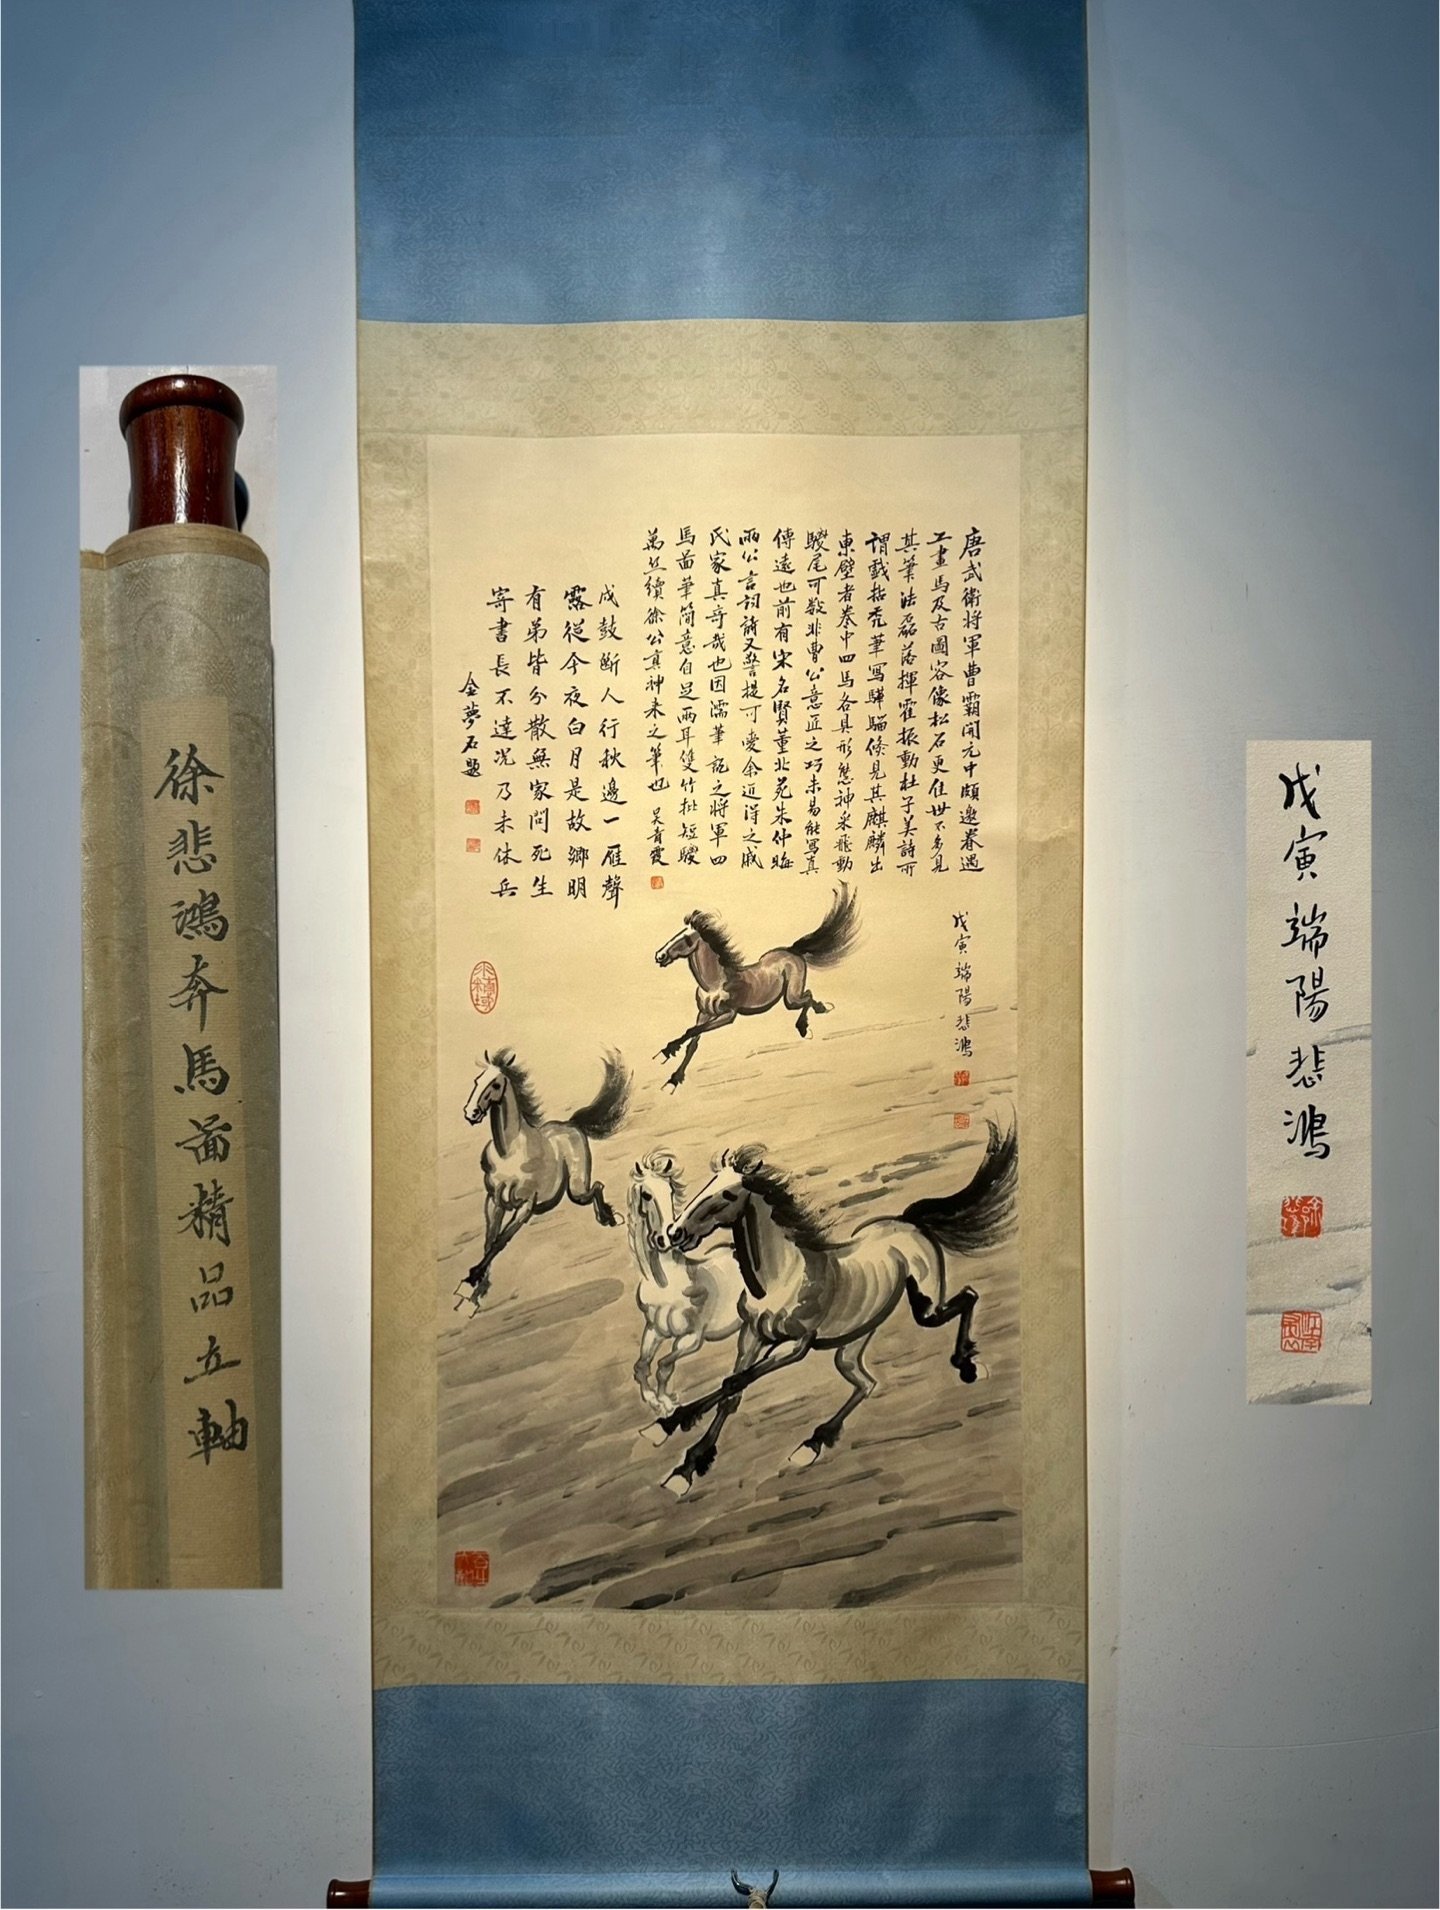 徐悲鴻奔馬啚精品立軸
唐武衛將軍曹霸開元中頗邀眷遇
工畫馬及古圖容像松石更佳世不多見
其筆法磊落揮霍振動杜子美詩所
謂戲拈禿筆寫驊騮倏見其麒麟出
東壁者卷中四馬各具形態神采飛動
騣尾可數非曹公意匠之巧未易能寫真
傳遠也前有宋名賢董北苑朱仲晦
兩公言詞詩又警提可愛余近得之戚
氏家真奇哉也因濡筆記之將軍四
馬啚筆簡意自足兩耳雙竹批短騣
萬丝續徐公真神来之筆也 吴青霞
戍鼓斷人行秋邊一雁聲
露從今夜白月是故鄉明
有弟皆分散無家問死生
寄書長不達况乃未休兵
金夢石題
戊寅端陽悲鴻
戊寅端陽悲鴻